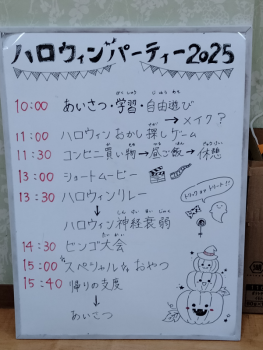 ハロウィンパーティー2025
10:00 あいさつ・学習・自由遊び
→メイク?
11:00 ハロウィンおかし探しゲーム
11:30 コンビニ買い物→昼ご飯→休憩
13:00 ショートムービー
13:30 ハロウィンリレー
↓
ハロウィン神経衰弱
14:30 ビンゴ大会
15:00 スペシャルおやつ
15:40 帰りの支度
↓
あいさつ
トリック オア トリート!!